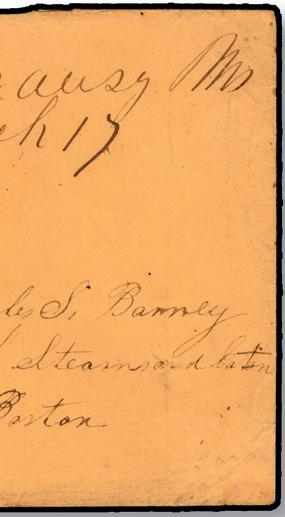 ausy Ms
ch 17
les S. Barney
Stearns and
Boston